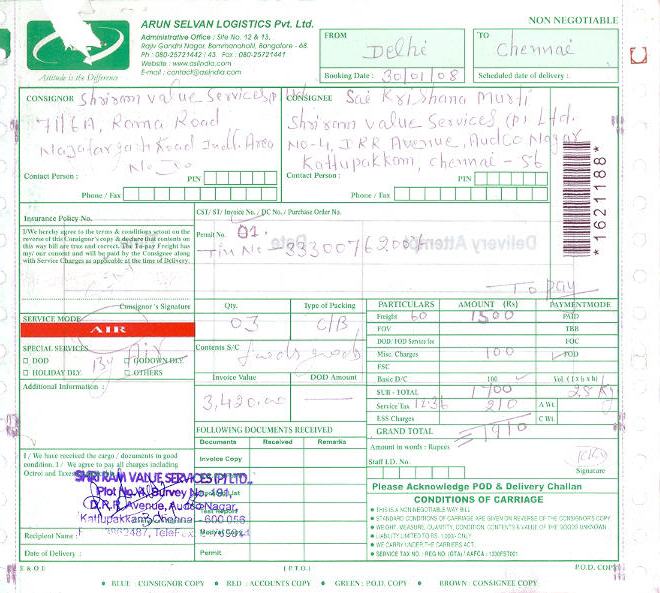 ARUN SELVAN LOGISTICS Pvt. Ltd.
Administrative Office : Site No. 12 & 13,
Rajiv Gandhi Nagar, Bommanahalli, Bangalore - 68.
Ph : 080-25721442 / 43. Fax : 080-25721441
Website : www.aslindia.com
E-mail : contact@aslindia.com
Attitude is the Difference
NON NEGOTIABLE
FROM
Delhi
Booking Date : 30/01/08
TO
Chennai
Scheduled date of delivery :
CONSIGNOR Shriram Value Services (P) Ltd.
71/6A, Rama Road
Najafgarh Road Indl. Area
Contact Person :
PIN
Phone / Fax
CONSIGNEE Sai Krishana Murti
Shriram Value Services (P) Ltd.
No-4, DRR Avenue, Audco Nagar
Kattupakkam, Chennai - 56
Contact Person :
PIN
Phone / Fax
*1621188*
Insurance Policy No.
I/We hereby agree to the terms & conditions setout on the
reverse of this Consignor's copy & declare that contents on
this way bill are true and correct. The To-pay Freight has
my/our consent and will be paid by the Consignee along
with Service Charges as applicable at the time of Delivery.
Consignor's Signature
CST/ ST/ Invoice No./ DC No./ Purchase Order No.
Permit No. 01.
Tin No - 33300762001
To Pay
SERVICE MODE
AIR
SPECIAL SERVICES
DOD
GODOWN DLY
HOLIDAY DLY
OTHERS
Additional Information :
Qty.
03
Type of Packing
C/B
Contents S/C
Invoice Value
3,420.00
DOD Amount
PARTICULARS
AMOUNT (Rs)
PAYMENTMODE
Freight 60
1500
PAID
FOV
TBB
DOD/ FOD Service fee
FOC
Misc. Charges
100
FOD
FSC
Basic D/C
100
Vol. ( l x b x h )
SUB - TOTAL
1700
25 Kg
Service Tax 12.36
210
A Wt.
ESS Charges
C Wt.
GRAND TOTAL
1910
Amount in words : Rupees
Staff I.D. No.
Signature
FOLLOWING DOCUMENTS RECEIVED
Documents
Received
Remarks
Invoice Copy
Test Report
Permit
I / We have received the cargo / documents in good
condition. I / We agree to pay all charges including
Octroi and Taxes
SHRIRAM VALUE SERVICES (P) LTD.,
Plot No.4, Survey No. 191,
D.R.R. Avenue, Audco Nagar,
Kattupakkam, Chennai - 600 056
Recipient Name :
Date of Delivery :
Please Acknowledge POD & Delivery Challan
CONDITIONS OF CARRIAGE
THIS IS A NON NEGOTIABLE WAY BILL
STANDARD CONDITIONS OF CARRIAGE ARE GIVEN ON REVERSE OF THE CONSIGNOR'S COPY
WEIGHT, MEASURE, QUANTITY, CONTENTS, VALUE OF THE GOODS UNKNOWN
LIABILITY LIMITED TO RS. 1000/- ONLY
WE CARRY UNDER THE CARRIERS ACT.
E & O E
(P.T.O.)
P.O.D. COPY
BLUE : CONSIGNOR COPY
RED : ACCOUNTS COPY
GREEN : P.O.D. COPY
BROWN : CONSIGNEE COPY